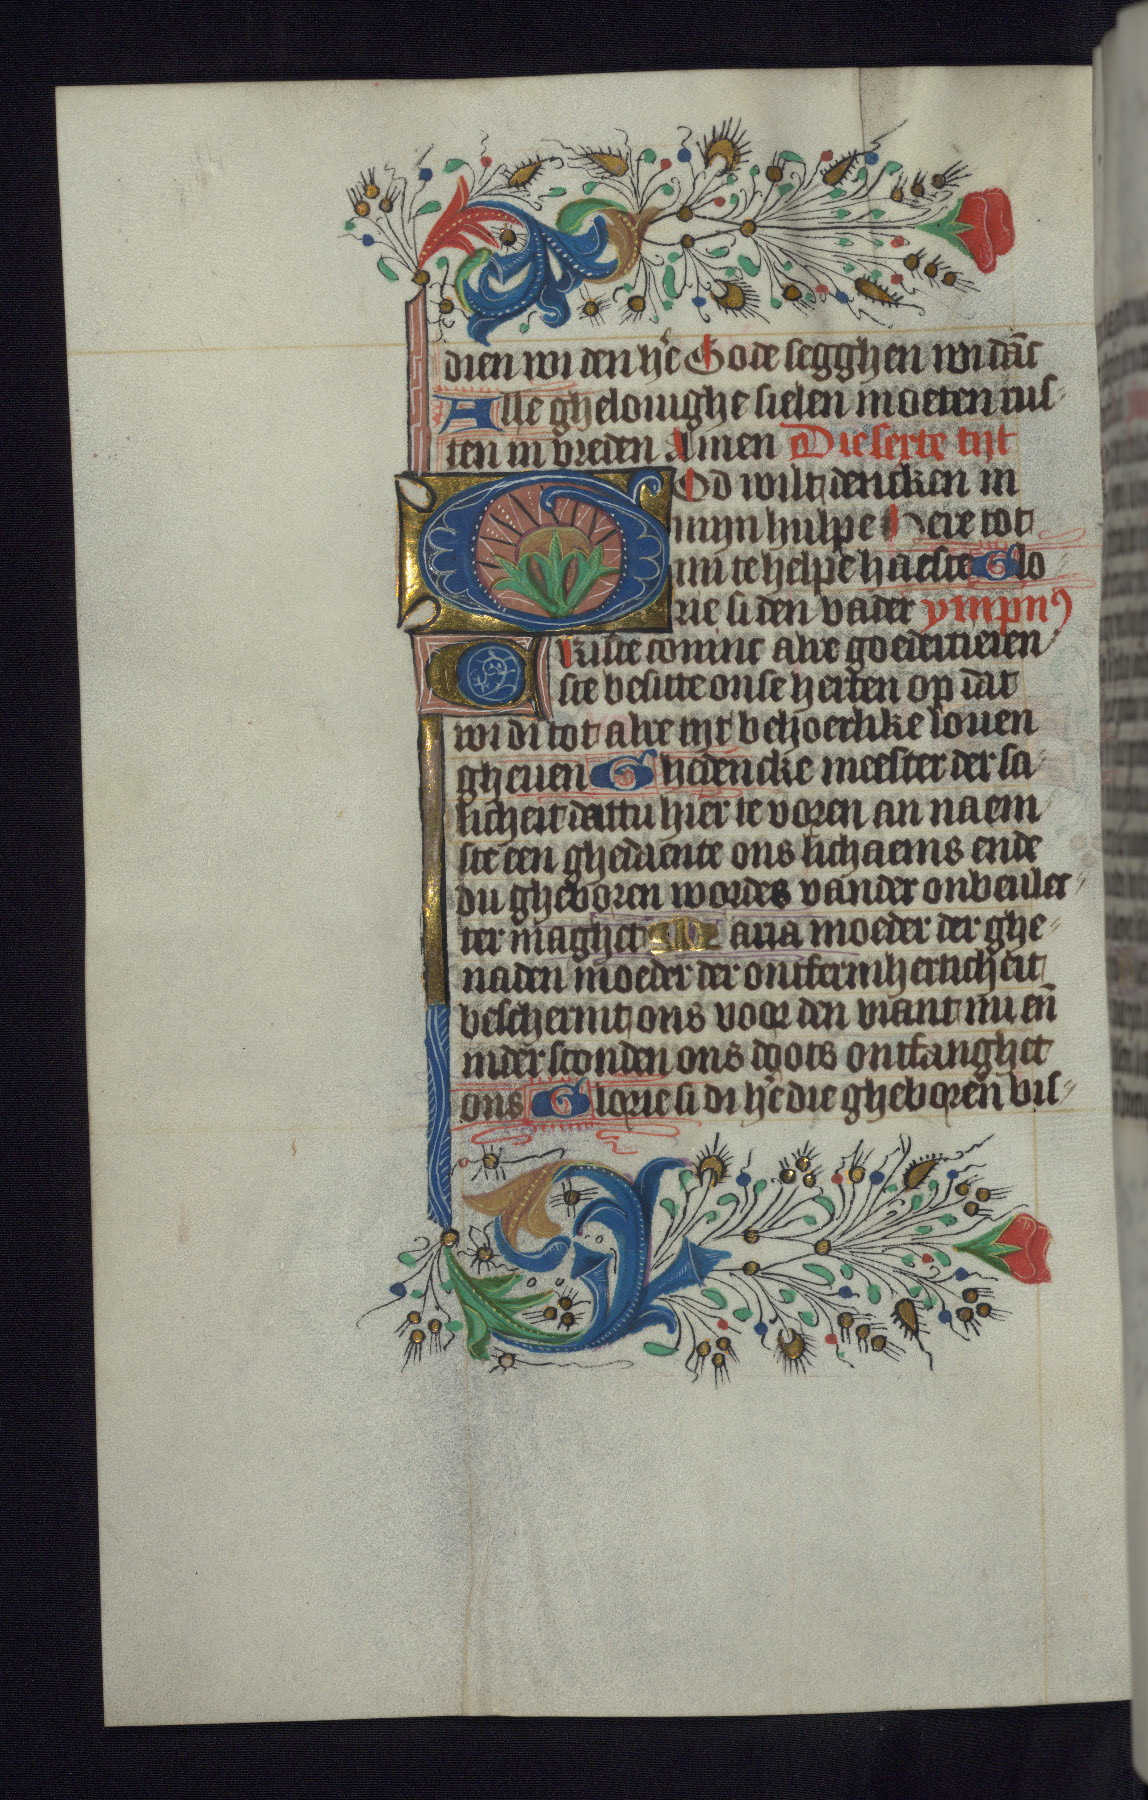 dien wi den hr̄e Gode segghen wi dāc
Alle ghelouighe sielen moeten rus-
ten in vreden Amen Die sexte tijt
God wilt dencken in
mijn hulpe Here tot
mi te helpe haeste Glo
rie si den vader ympnꝰ
Criste coninc alre goedertieren
ste besitte onse herten op dat
wi di tot alre tijt behoerlike louen
gheuen Ghedencke meester der sa-
licheit dattu hier te voren an naem
ste een ghedaente ons lichaems ende
du gheboren wordes vander onbeulec-
ter maghet Maria moeder der ghe-
naden moeder der ontfermherticheit
beschermt ons voor den viant nu eñ
inder stonden ons doots ontfanghet
ons Glorie si di hr̄e die gheboren bis-